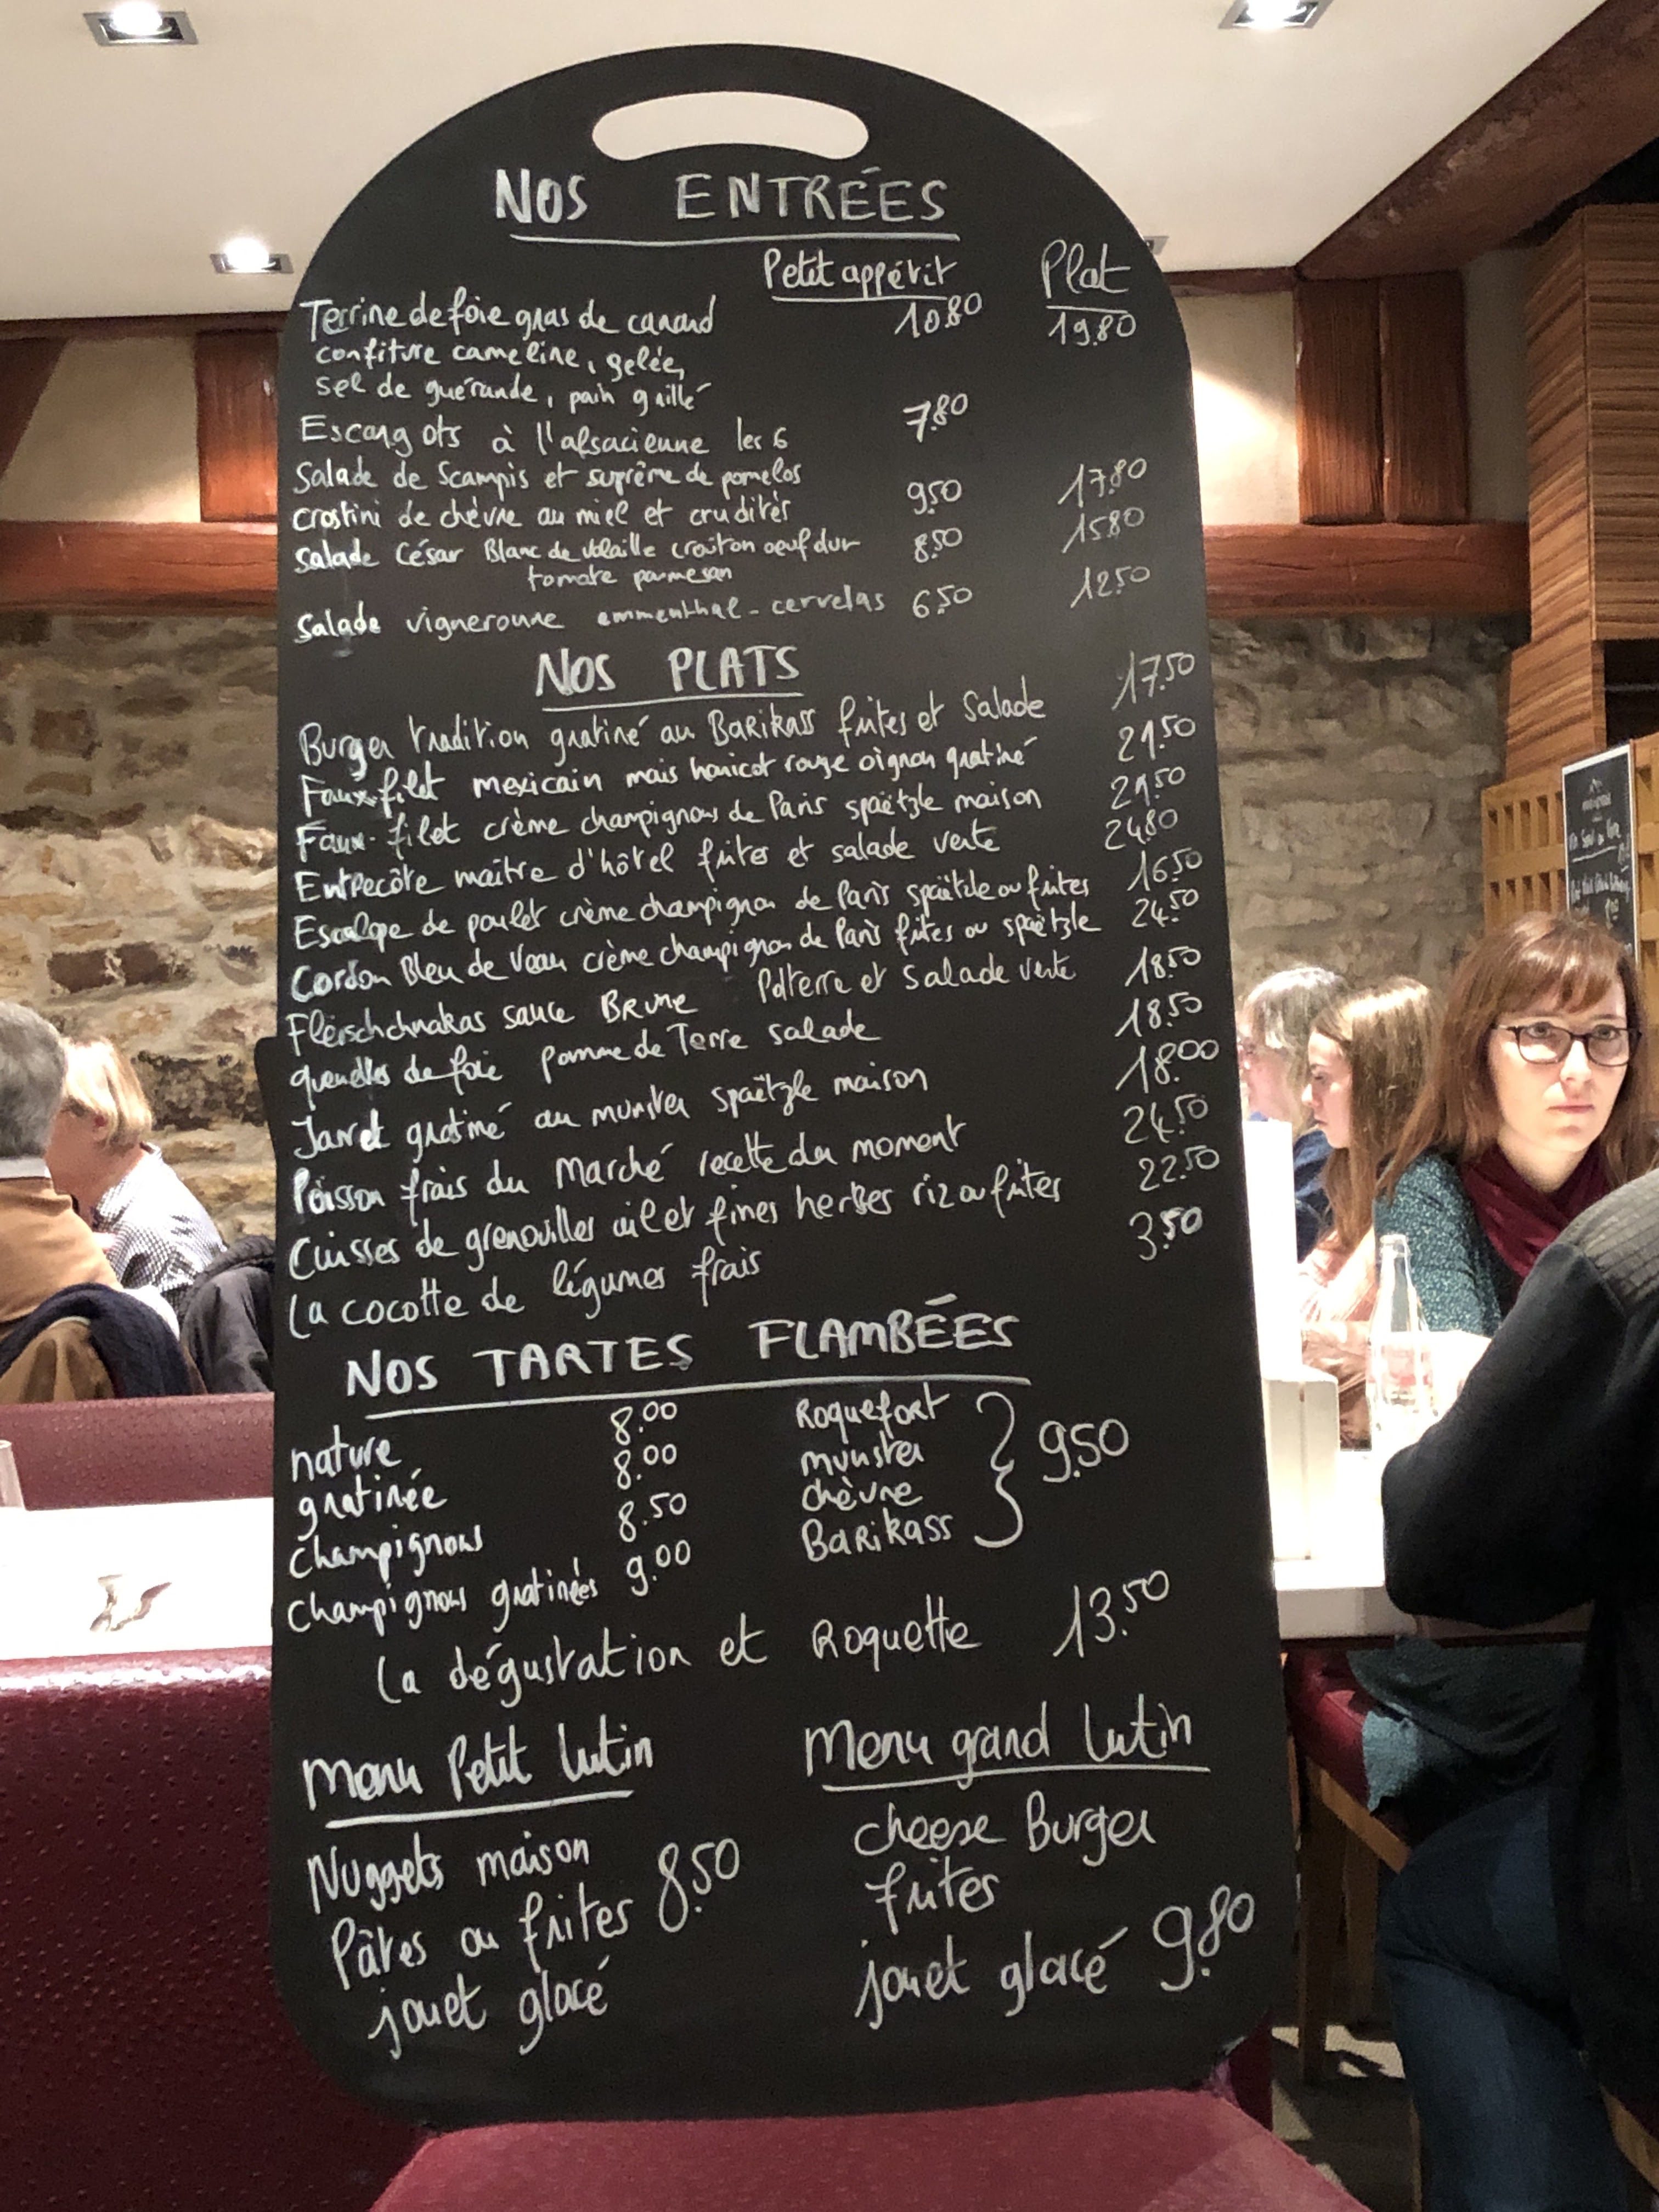 NOS ENTRÉES
Petit appérit Plat
Terrine de foie gras de canard 10.80 19.80
confiture cameline, gelée,
sel de guérande, pain grillé
Escargots à l'alsacienne les 6 7.80
Salade de Scampis et suprême de pomelos
crostini de chèvre au miel et crudités 9.50 17.80
Salade César Blanc de volaille croûton oeuf dur 8.50 15.80
tomate parmesan
Salade vigneronne emmenthal - cervelas 6.50 12.50
NOS PLATS
Burger tradition gratiné au Barikass frites et Salade 17.50
Faux-filet mexicain mais haricot rouge oignon gratiné 21.50
Faux-filet crème champignons de Paris spaëtzle maison 21.50
Entrecôte maître d'hôtel frites et salade verte 24.80
Escalope de poulet crème champignon de Paris spaëtzle ou frites 16.50
Cordon Bleu de Veau crème champignon de Paris frites ou spaëtzle 24.50
Fleischchnakas sauce Brune Pdterre et Salade verte 18.50
quenelles de foie pomme de Terre salade 18.50
Jarret gratiné au munster spaëtzle maison 18.00
Poisson frais du Marché recette du moment 24.50
Cuisses de grenouilles ail et fines herbes riz ou frites 22.50
La cocotte de légumes frais 3.50
NOS TARTES FLAMBÉES
nature 8.00 Roquefort
gratinée 8.00 munster 9.50
champignons 8.50 chèvre
champignons gratinées 9.00 Barikass
La dégustation et Roquette 13.50
Menu Petit lutin
Nuggets maison
Pâtes ou frites 8.50
jouet glacé
Menu grand lutin
cheese Burger
frites
jouet glacé 9.80